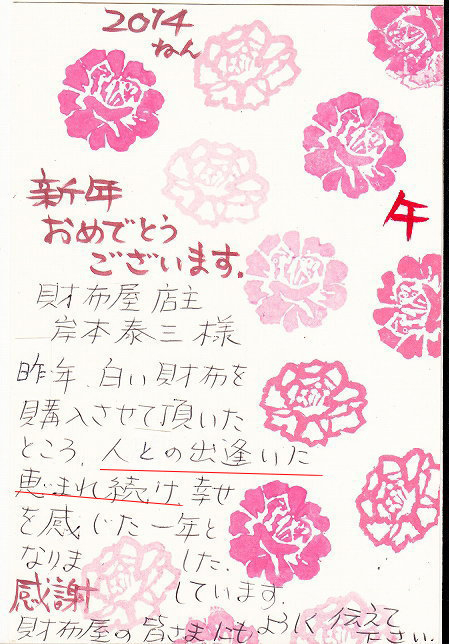 2014
ねん
新年
おめでとう
ございます.
午
財布屋 店主
岸本泰三様
昨年、白い財布を
購入させて頂いた
ところ、人との出逢いた
恵まれ続け、幸せ
を感じた一年と
なりました.
感謝しています.
財布屋の皆さまにもよろしく伝えて
下さい.